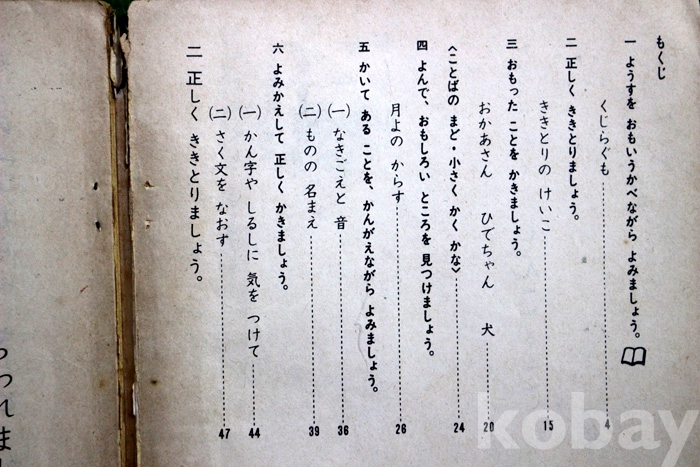 もくじ
一 ようすを おもいうかべながら よみましょう。
くじらぐも 4
二 正しく ききとりましょう。
ききとりの けいこ 15
三 おもった ことを かきましょう。
おかあさん ひでちゃん 犬 20
〈ことばの まど・小さく かく かな〉 24
四 よんで、おもしろい ところを 見つけましょう。
月よの からす 26
五 かいて ある ことを、かんがえながら よみましょう。
(一) なきごえと 音 36
(二) ものの 名まえ 39
六 よみかえして 正しく かきましょう。
(一) かん字や しるしに 気を つけて 44
(二) さく文を なおす 47
二 正しく ききとりましょう。
kobay